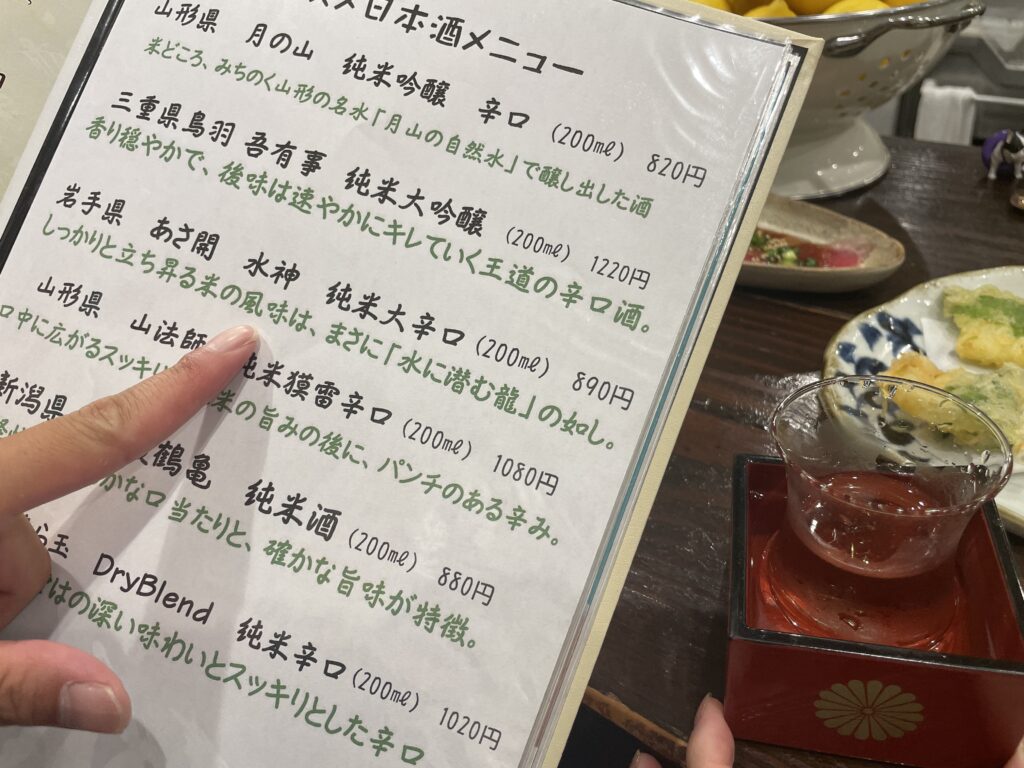 スメ日本酒メニュー
山形県 月の山 純米吟醸 辛口 (200㎖) 820円
米どころ、みちのく山形の名水「月山の自然水」で醸し出した酒
三重県鳥羽 吾有事 純米大吟醸 (200㎖) 1220円
香り穏やかで、後味は速やかにキレていく王道の辛口酒。
岩手県 あさ開 水神 純米大辛口 (200㎖) 890円
しっかりと立ち昇る米の風味は、まさに「水に潜む龍」の如し。
山形県 山法師 純米獏雷辛口 (200㎖) 1080円
口中に広がるスッキリ 米の旨みの後に、パンチのある辛み。
新潟県 鶴亀 純米酒 (200㎖) 880円
かな口当たりと、確かな旨味が特徴。
玉 DryBlend 純米辛口 (200㎖) 1020円
はの深い味わいとスッキリとした辛口